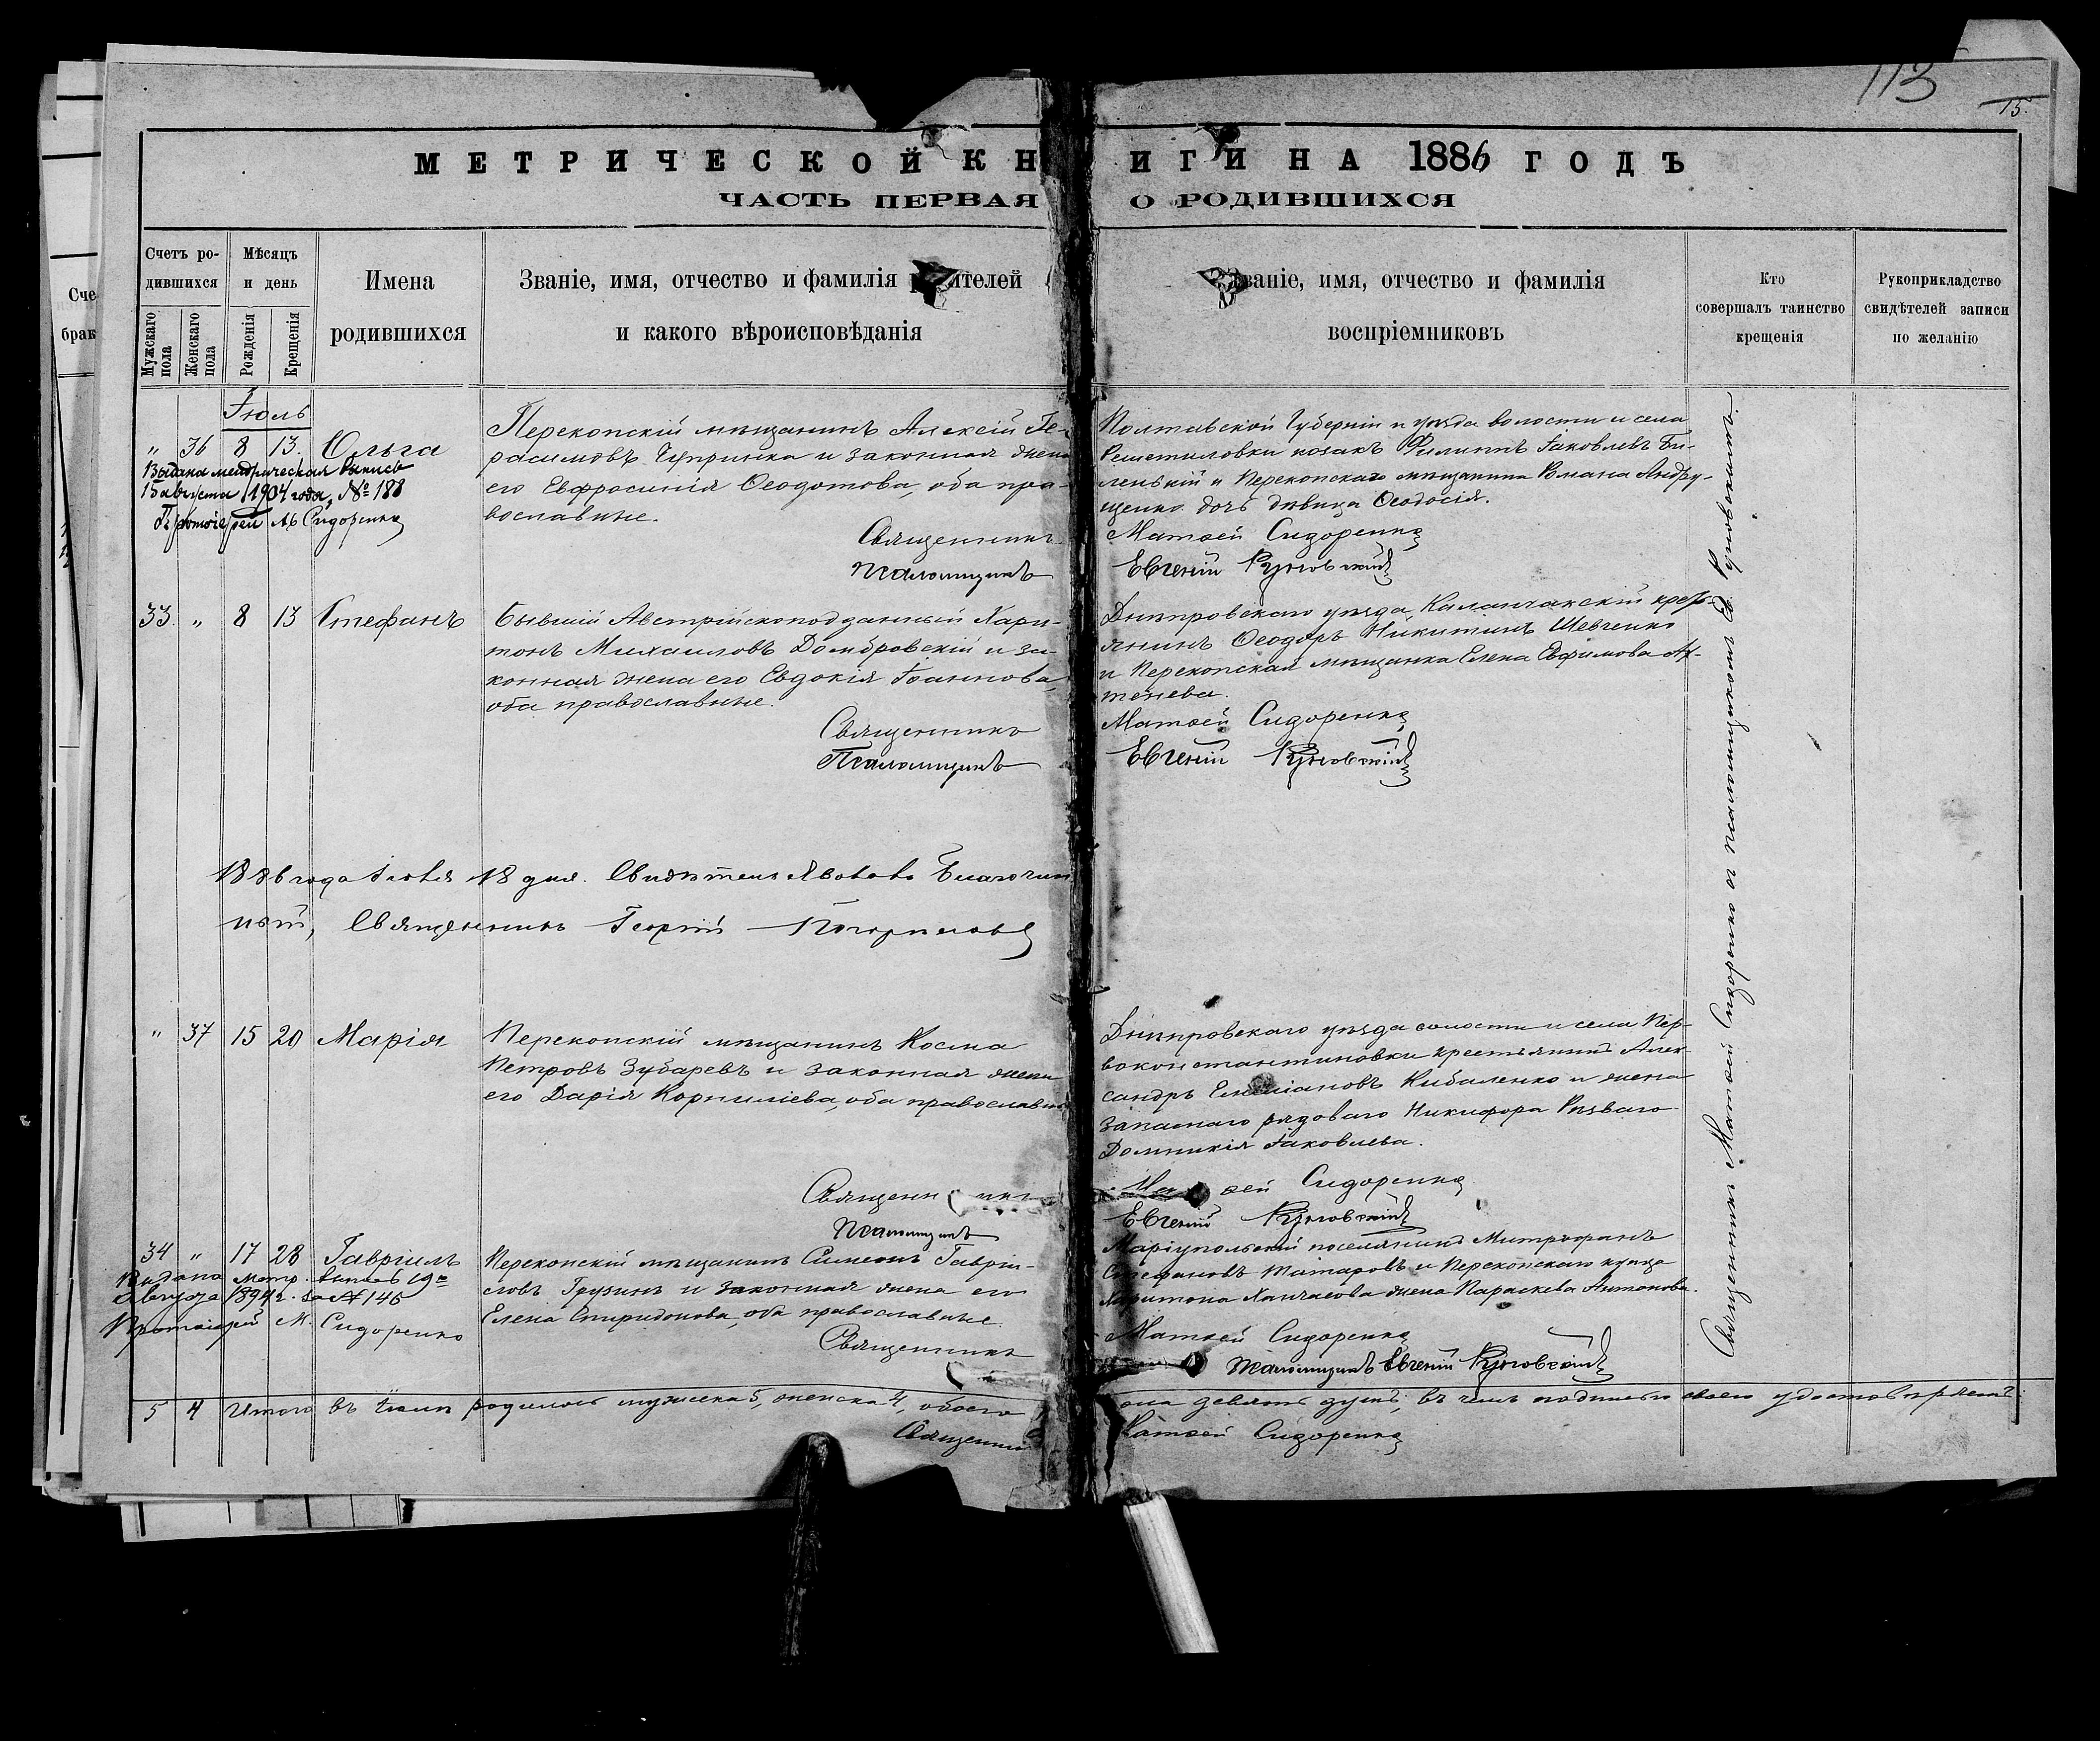 113
15.
МЕТРИЧЕСКОЙ КНИГИ НА 1886 ГОДЪ
ЧАСТЬ ПЕРВАЯ О РОДИВШИХСЯ
Счетъ родившихся
Мужскаго пола
Женскаго пола
Мѣсяцъ и день
Рожденія
Крещенія
Имена
родившихся
Званіе, имя, отчество и фамилія родителей
и какого вѣроисповѣданія
Званіе, имя, отчество и фамилія
воспріемниковъ
Кто
совершалъ таинство
крещенія
Рукоприкладство
свидѣтелей записи
по желанію
Сче
брак
Іюль
„ 36 8 13. Ольга
Выдана метрическая выпись
15 августа 1904 года, № 188
Протоіерей М Сидоренко
Перекопскій мѣщанинъ Алексій Ге-
расимовъ Чупринка и законная жена
его Евфросинія Ѳеодотова, оба пра-
вославные.
Священникъ
Псаломщикъ
Полтавской Губерніи и уѣзда волости и села
Решетиловки козакъ Филиппъ Іаковлевъ Би-
ленькій и Перекопскаго мѣщанина Романа Андру-
щенко дочь дѣвица Ѳеодосія.
Матѳей Сидоренко
Евгеній
33. „ 8 13 Стефанъ
Бывшій Австрійскоподданный Хари-
тонъ Михаиловъ Домбровскій и за-
конная жена его Евдокія Іоаннова,
оба православные.
Священникъ
Псаломщикъ
Днѣпровскаго уѣзда Каланчакскій крест-
янинъ Ѳеодоръ Никитинъ Шевченко
и Перекопская мѣщанка Елена Евфимова Ар-
тенева.
Матѳей Сидоренко
Евгеній
1886 года Іюля 18 дня. Свидѣтельствовалъ Благочин
ный, Священникъ Георгій
„ 37 15 20 Марія
Перекопскій мѣщанинъ Косма
Петровъ Зубаревъ и законная жена
его Дарія Корниліева, оба православные
Священникъ
Псаломщикъ
Днѣпровскаго уѣзда волости и села Пер-
воконстантиновки крестьянинъ Алек-
сандръ Емеліановъ Кибаленко и жена
запаснаго рядоваго Никифора Рѣзваго
Домникія Іаковлева.
Матѳей Сидоренко
Евгеній
34 „ 17 28 Гавріилъ
Выдана метр. выпись 19го
Августа 1894 г. за № 146
Протоіерей М. Сидоренко
Перекопскій мѣщанинъ Симеонъ Гавріи-
ловъ Грузинъ и законная жена его
Елена Спиридонова, оба православные.
Священникъ
Маріупольскій поселянинъ Митрофанъ
Стефановъ Татаровъ и Перекопскаго купца
Харитона жена Параскева Антонова.
Матѳей Сидоренко
Псаломщикъ Евгеній
5 4 Итого въ Іюлѣ родилось мужеска 5, женска 4, обоего пола девять душъ; въ чемъ подписью своею удостовѣряемъ:
Священникъ Матѳей Сидоренко
Священникъ Матѳей Сидоренко съ псаломщикомъ Е.